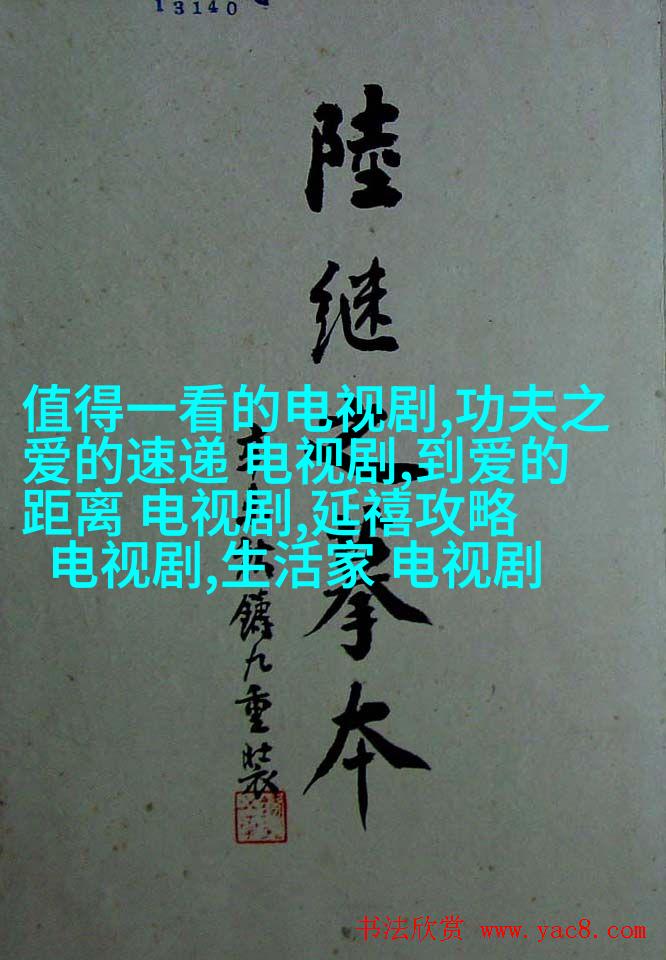 13140
陸继之摹本
鑄九重裝
值得一看的电视剧,功夫之
爱的速递 电视剧,到爱的
距离 电视剧,延禧攻略
电视剧,生活家 电视剧
书法欣赏 www.yac8.com